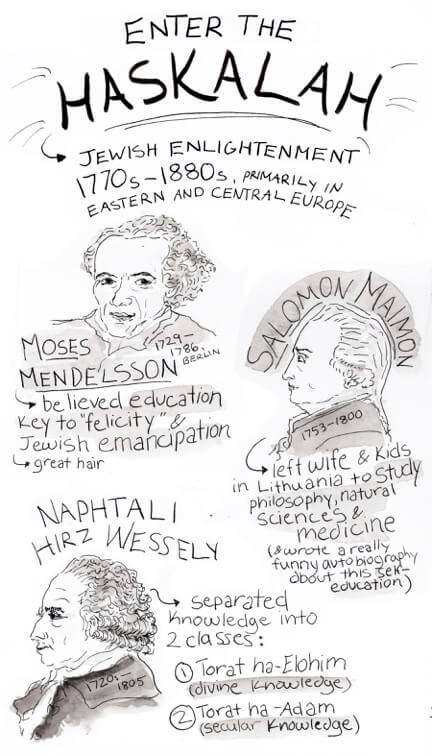 ENTER THE
HASKALAH
JEWISH ENLIGHTENMENT
1770s-1880s, PRIMARILY IN
EASTERN AND CENTRAL EUROPE
MOSES
MENDELSSON
1729-
1786,
BERLIN
believed education
key to "felicity" &
Jewish emancipation
great hair
SALOMON MAIMON
1753-1800
left wife & kids
in Lithuania to study
philosophy, natural
sciences &
medicine
(& wrote a really
funny autobiography
about this sek-
education)
NAPHTALI
HIRZ WESSELY
1720s-
1805
separated
knowledge into
2 classes:
1 Torat ha-Elohim
(divine knowledge)
2 Torat ha-Adam
(secular knowledge)